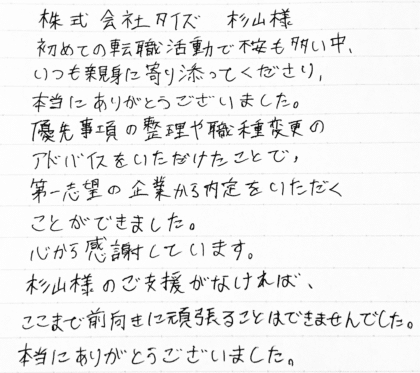 株式会社タイズ 杉山様
初めての転職活動で不安も多い中、
いつも親身に寄り添ってくださり、
本当にありがとうございました。
優先事項の整理や職種変更の
アドバイスをいただけたことで、
第一志望の企業から内定をいただく
ことができました。
心から感謝しています。
杉山様のご支援がなければ、
ここまで前向きに頑張ることはできませんでした。
本当にありがとうございました。